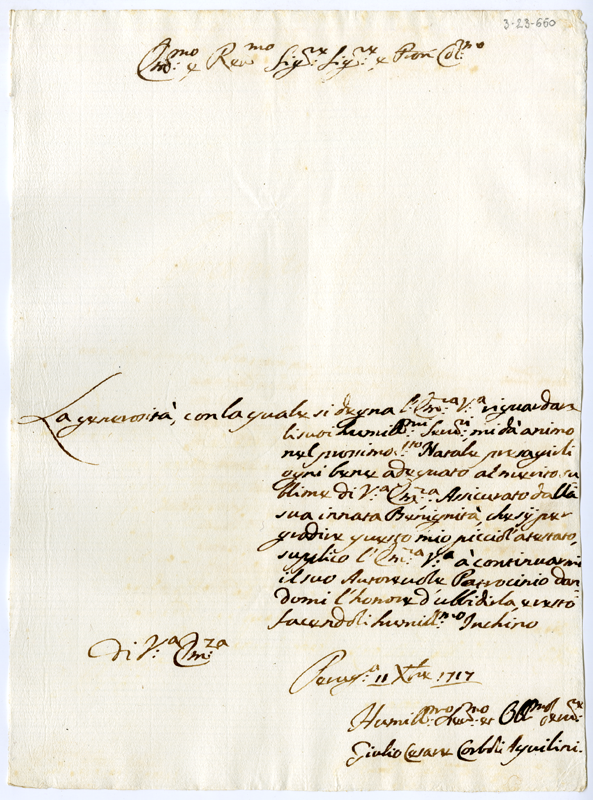 3-23-660
Em:mo e Reu:mo Sig:re Sig:re e Pron Col:mo
La generosità, con la quale si degna l'Em:za V:a riguardare
li suoi humill:mi Seru:ri mi dà animo
nel prossimo S:to Natale presagirli
ogni bene adequato al merito su
blime di V:a Em:za Assicurato dalla
sua innata Benignità, che
gradire questo mio picciol' attestato,
supplico l'Em:za V:a à continuarmi
il suo Autoreuole Patrocinio dan
domi l'honore d'ubbidirla, e resto
facendoli humill:mo Inchino
Di V:a Em:za
Perug:a 11 Xbre 1717
Humill:mo Deu:mo et Obl:mo Seru:re
Giulio Cesare Corboli Aquilini.